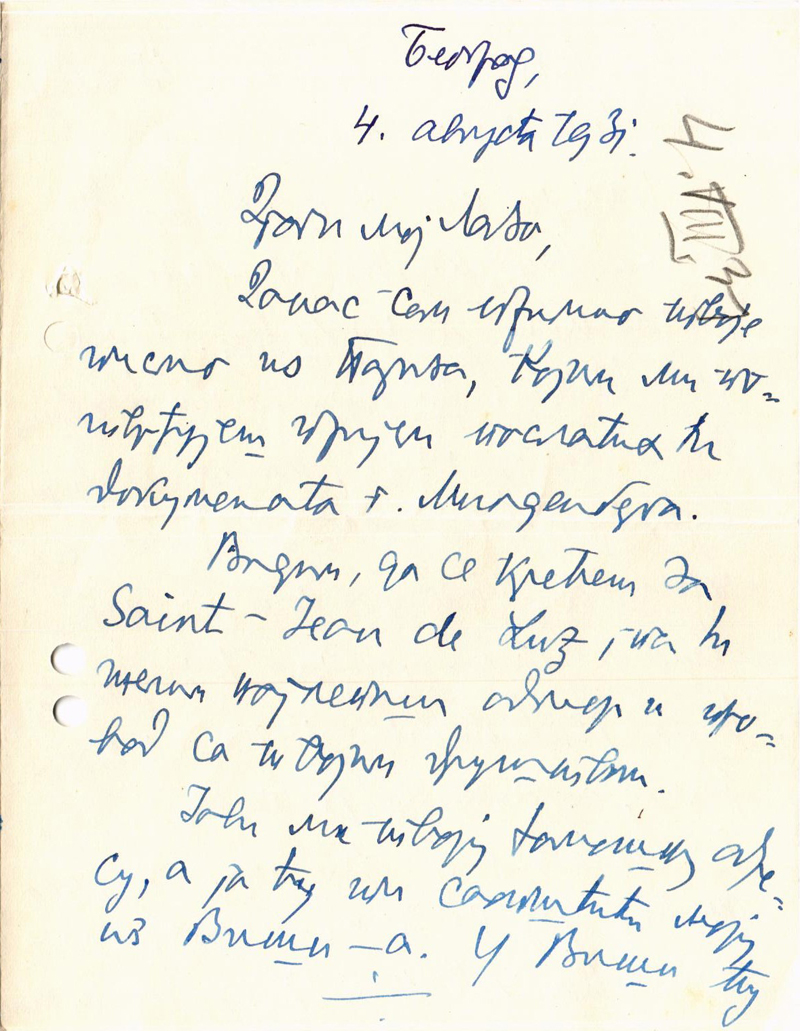 Београд,
4. августа 1931.
4.VIII.31
Драги мој Лазо,
Данас сам примио твоје
писмо из Париза, којим ми по-
тврђујеш пријем посланих ти
докумената г.
Видим, да се крећеш за
Saint-Jean de Luz, па ти
желим најлепши одмор и про-
вод са твојим друштвом.
Јави ми твоју тамошњу адре-
су, а ја ћу ти саопштити моју
из Виши-а. У Виши ћу